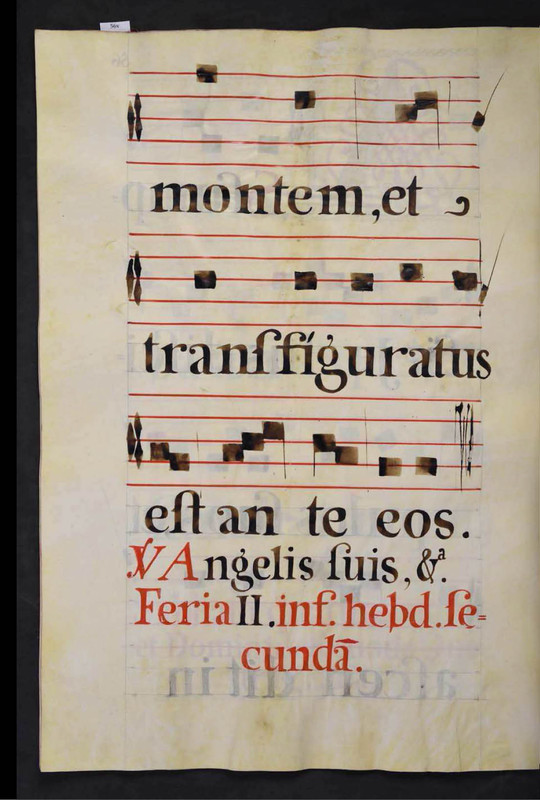 montem, et
tranſfíguratus
eſt an te eos.
℣ Angelis ſuis, &ª.
Feria II. inf. hebd. ſe=
cundā.